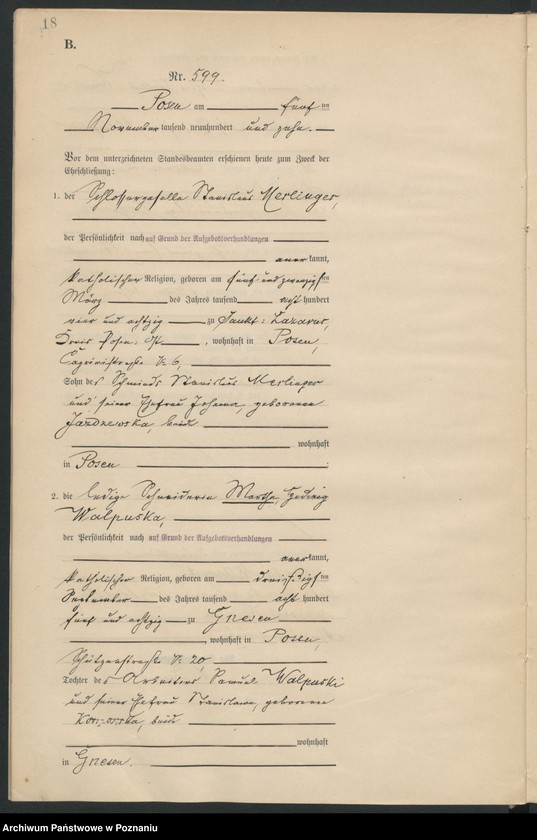 18
B.
Nr. 599.
Posen am fünften
November tausend neunhundert und zehn.
Vor dem unterzeichneten Standesbeamten erschienen heute zum Zweck der
Eheschließung:
1. der Schlossergeselle Stanislaus Merlinger,
der Persönlichkeit nach auf Grund der Aufgebotsverhandlungen
anerkannt,
katholischer Religion, geboren am fünfundzwanzigsten
März des Jahres tausend acht hundert
vier und achtzig zu Sankt: Lazarus,
Kreis Posen: Ost, wohnhaft in Posen,
Caprivistraße № 6,
Sohn des Schmieds Stanislaus Merlinger
und seiner Ehefrau Johanna geborenen
Jazdzewska, beide
wohnhaft
in Posen.
2. die ledige Schneiderin Martha, Hedwig
Walpuska,
der Persönlichkeit nach auf Grund der Aufgebotsverhandlungen
anerkannt,
katholischer Religion, geboren am dreißigsten
September des Jahres tausend acht hundert
fünf und achtzig zu Gnesen
, wohnhaft in Posen,
Schützenstraße № 20,
Tochter des Arbeiters Samuel Walpuski
und seiner Ehefrau Stanislawa, geborenen
beide
wohnhaft
in Gnesen.
Archiwum Państwowe w Poznaniu